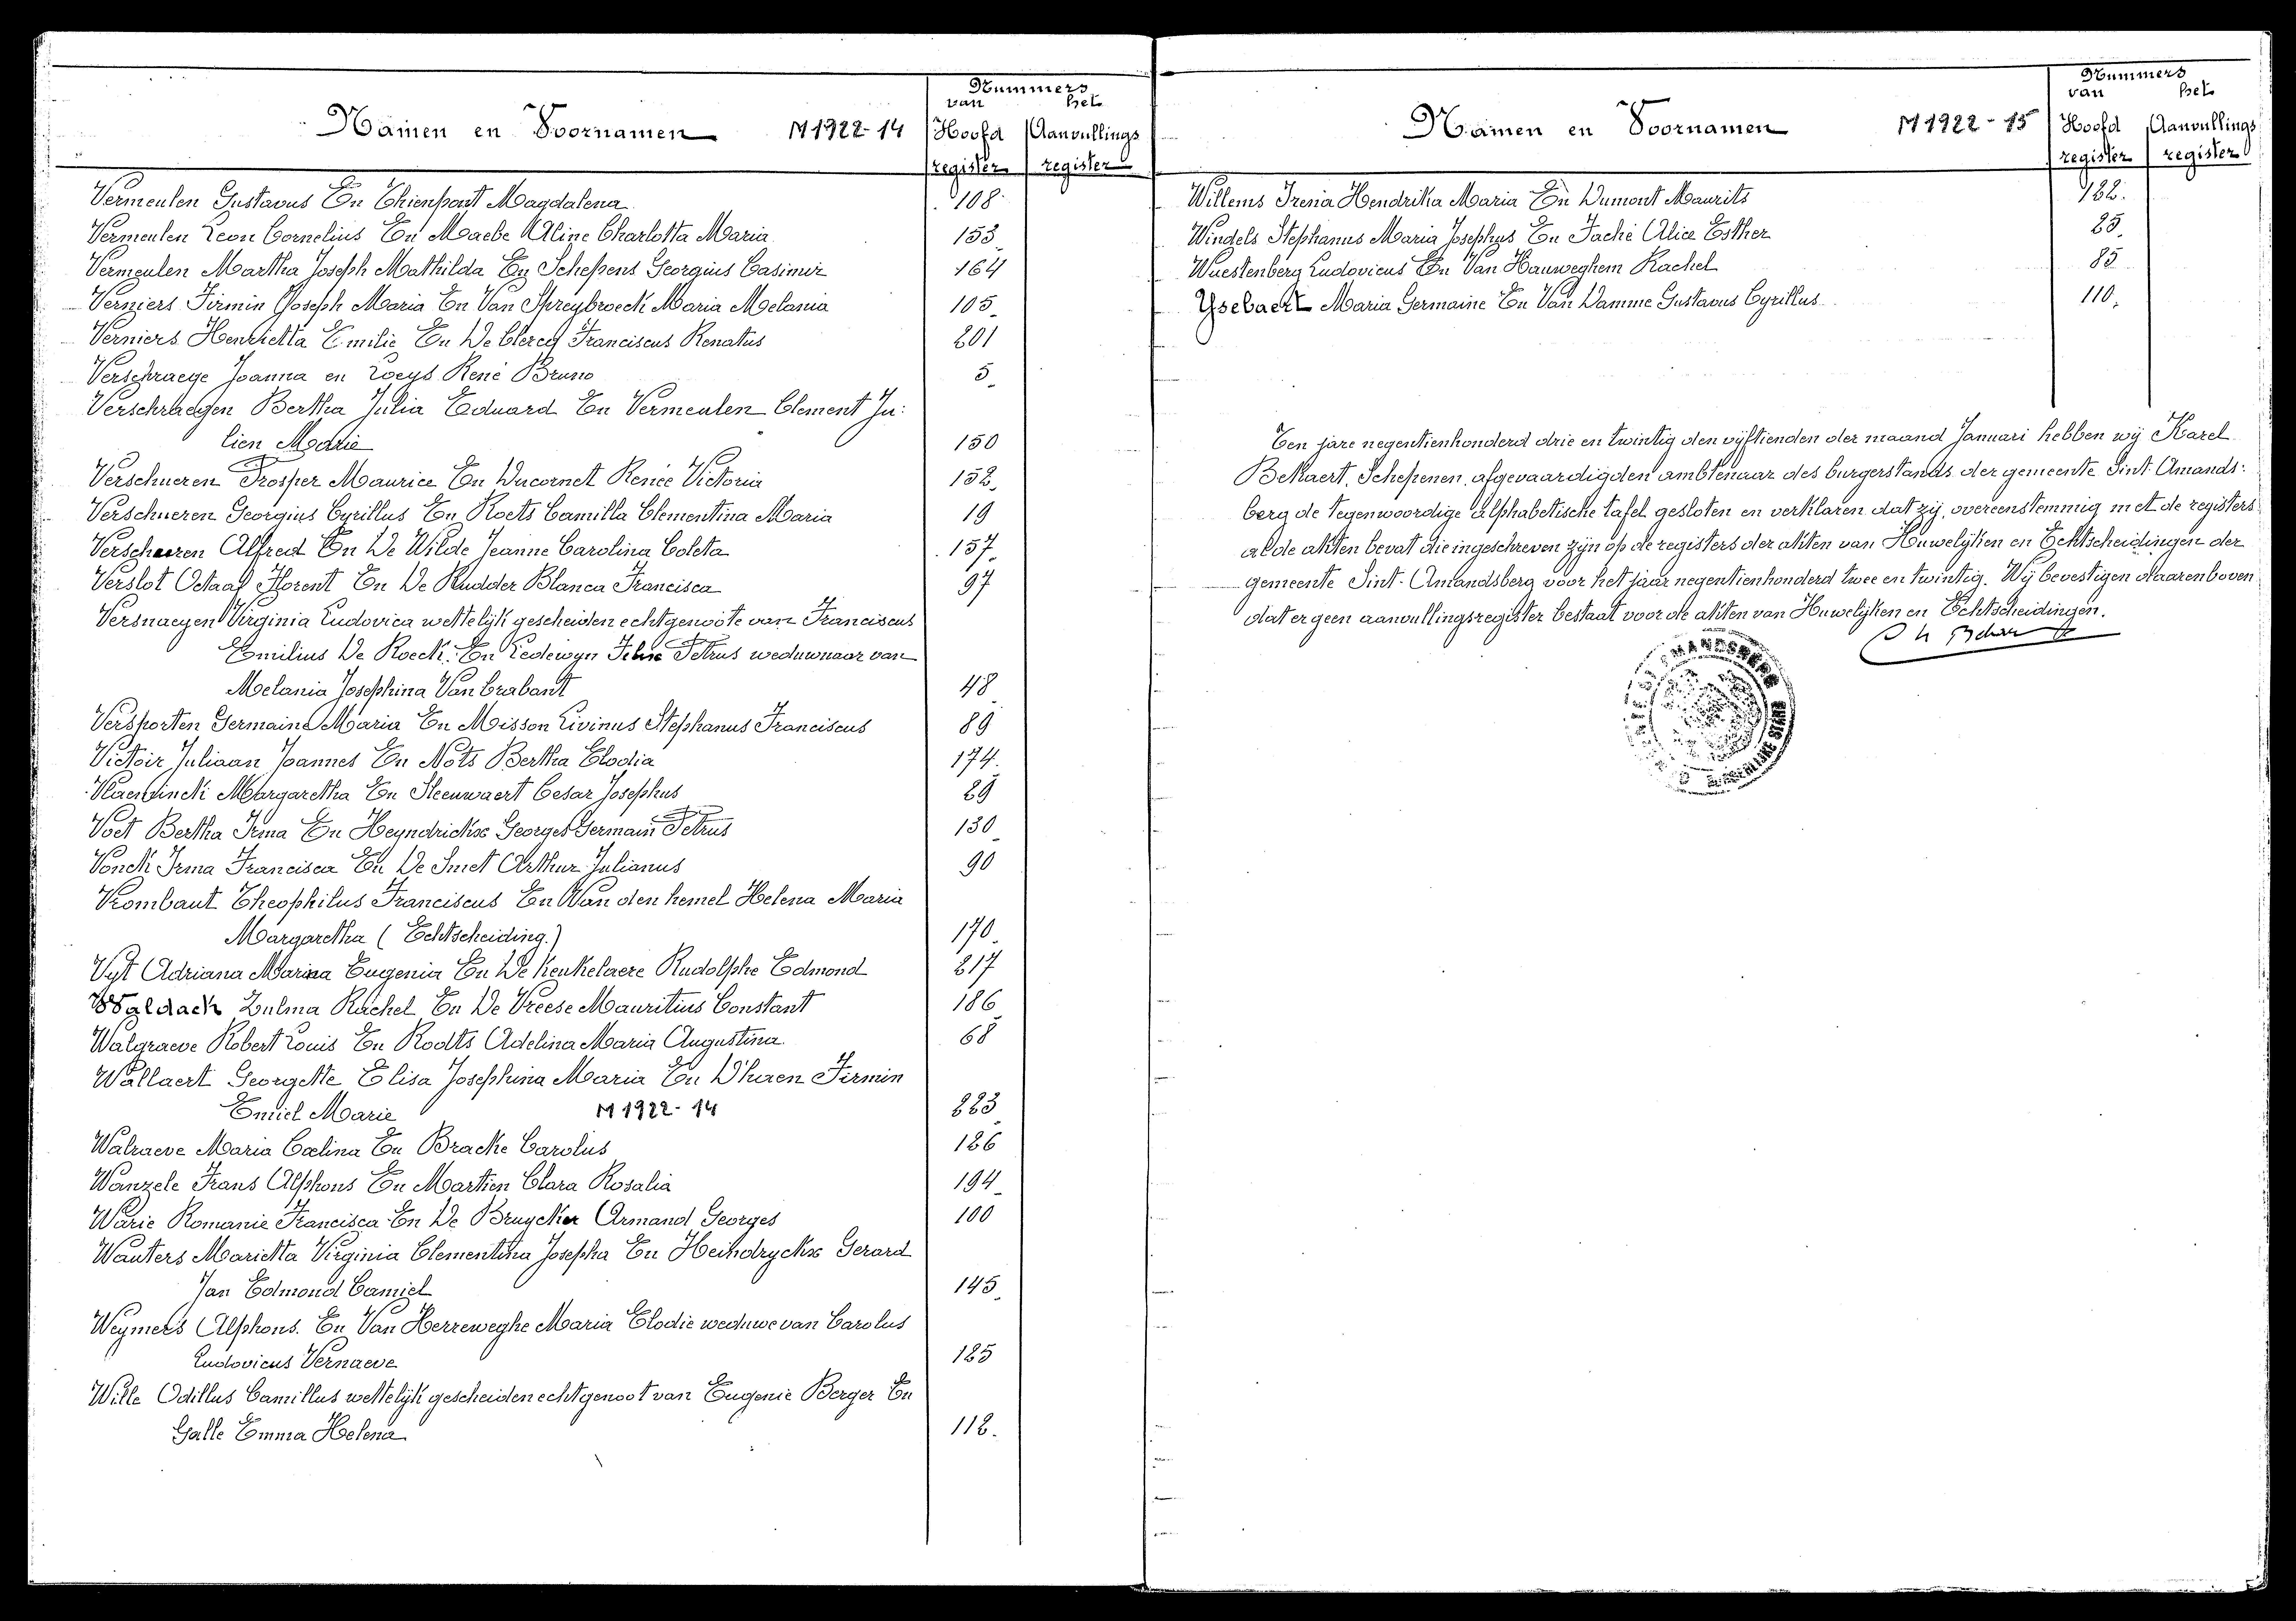 Nummers
Namen en Voornamen M 1922-14 van het
Hoofd Aanvullings
register register
Vermeulen Gustavus En Thienpont Magdalena 108.
Vermeulen Leon Cornelius En Maebe Aline Charlotta Maria 153
Vermeulen Martha Joseph Mathilda En Schepens Georgius Casimir 164
Verniers Firmin Joseph Maria En Van Spreybroeck Maria Melania 105
Verniers Henrietta Emilie En De Clercq Franciscus Renatus 201
Verschraege Joanna en Loeys René Bruno 5
Verschraegen Bertha Julia Eduard En Vermeulen Clement Ju:
lien Marie 150
Verschueren Prosper Maurice En Ducornet Renée Victoria 152
Verschueren Georgius Cyrillus En Roets Camilla Clementina Maria 19
Verscheuren Alfred En De Wilde Jeanne Carolina Coleta 157
Verslot Octaaf Florent En De Rudder Blanca Francisca 97
Versnaeyen Virginia Ludovica wettelijk gescheiden echtgenoote van Franciscus
Emilius De Roeck. En Ledewyn Petrus weduwnaar van
Melania Josephina Van brabant 48
Versporten Germaine Maria En Misson Livinus Stephanus Franciscus 89
Victoir Juliaan Joannes En Nots Bertha Elodia 174.
Vlaeminck Margaretha En Steeuwaert Cesar Josephus 29
Voet Bertha Irma En Heyndrickx Georges Germain Petrus 130
Vonck Irma Francisca En De Smet Arthur Julianus 90
Vrombaut Theophilus Franciscus En Van den hemel Helena Maria
Margaretha (Echtscheiding.) 170
Vyt Adriana Marina Eugenia En De Keukelaere Rudolphe Edmond 217
Waldack Zulma Rachel En De Vreese Mauritius Constant 186
Walgraeve Robert Louis En Rodts Adelina Maria Augustina 68
Wallaert Georgette Elisa Josephina Maria En D'haen Firmin
Emiel Marie M 1922-14 223
Walraeve Maria Cœlina En Bracke Carolus 126
Wanzele Frans Alphons En Martien Clara Rosalia 194
Warie Romanie Francisca En De Bruycker Armand Georges 100
Wauters Marietta Virginia Clementina Josepha En Heindryckx Gerard
Jan Edmond Camiel 145
Weymers Alphons. En Van Herreweghe Maria Elodie weduwe van Carolus
Ludovicus Vernaeve 125
Wille Odillus Camillus wettelijk gescheiden echtgenoot van Eugenie Berger En
Galle Emma Helena 112.
Nummers
Namen en Voornamen M 1922-15 van het
Hoofd Aanvullings
register register
Willems Irena Hendrika Maria En Dumont Maurits 122.
Windels Stephanus Maria Josephus En Faché Alice Esther 25
Wuestenberg Ludovicus En Van Hauweghem Rachel 85
Ysebaert Maria Germaine En Van Damme Gustavus Cyrillus 110.
Ten jare negentienhonderd drie en twintig den vijftienden der maand Januari hebben wij Karel
Bekaert, Schepenen, afgevaardigden ambtenaar des burgerstands der gemeente Sint Amands:
berg de tegenwoordige alphabetische tafel gesloten en verklaren dat zij, overeenstemmig met de registers
al de akten bevat die ingeschreven zijn op de registers der akten van Huwelijken en Echtscheidingen der
gemeente Sint-Amandsberg voor het jaar negentienhonderd twee en twintig. Wij bevestigen daarenboven
dat er geen aanvullingsregister bestaat voor de akten van Huwelijken en Echtscheidingen.